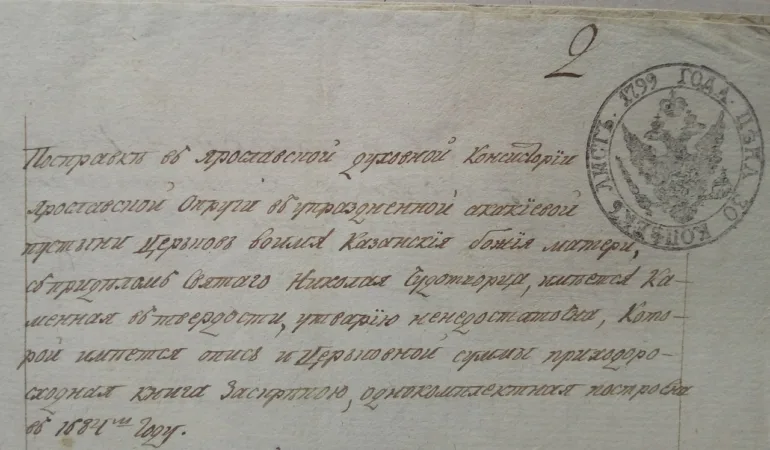 2
ЛИСТЪ. 1799 ГОДА. ЦѢНА 30 КОПѢЕКЪ
Посправкѣ въ ярославской духовной Консисторіи
ярославской Округи въ упраздненной акакіевой
пустыни Церьковь воимя Казанскія божія матери,
съ придѣломъ Святаго Николая Чудотворца, имѣется Ка-
менная въ твердости, утварію ненедостаточна, Кото-
рой имѣется опись и Церьковной суммы приходоро-
сходная книга Заскрѣпою, однокомплектная построена
въ 1684м Году.